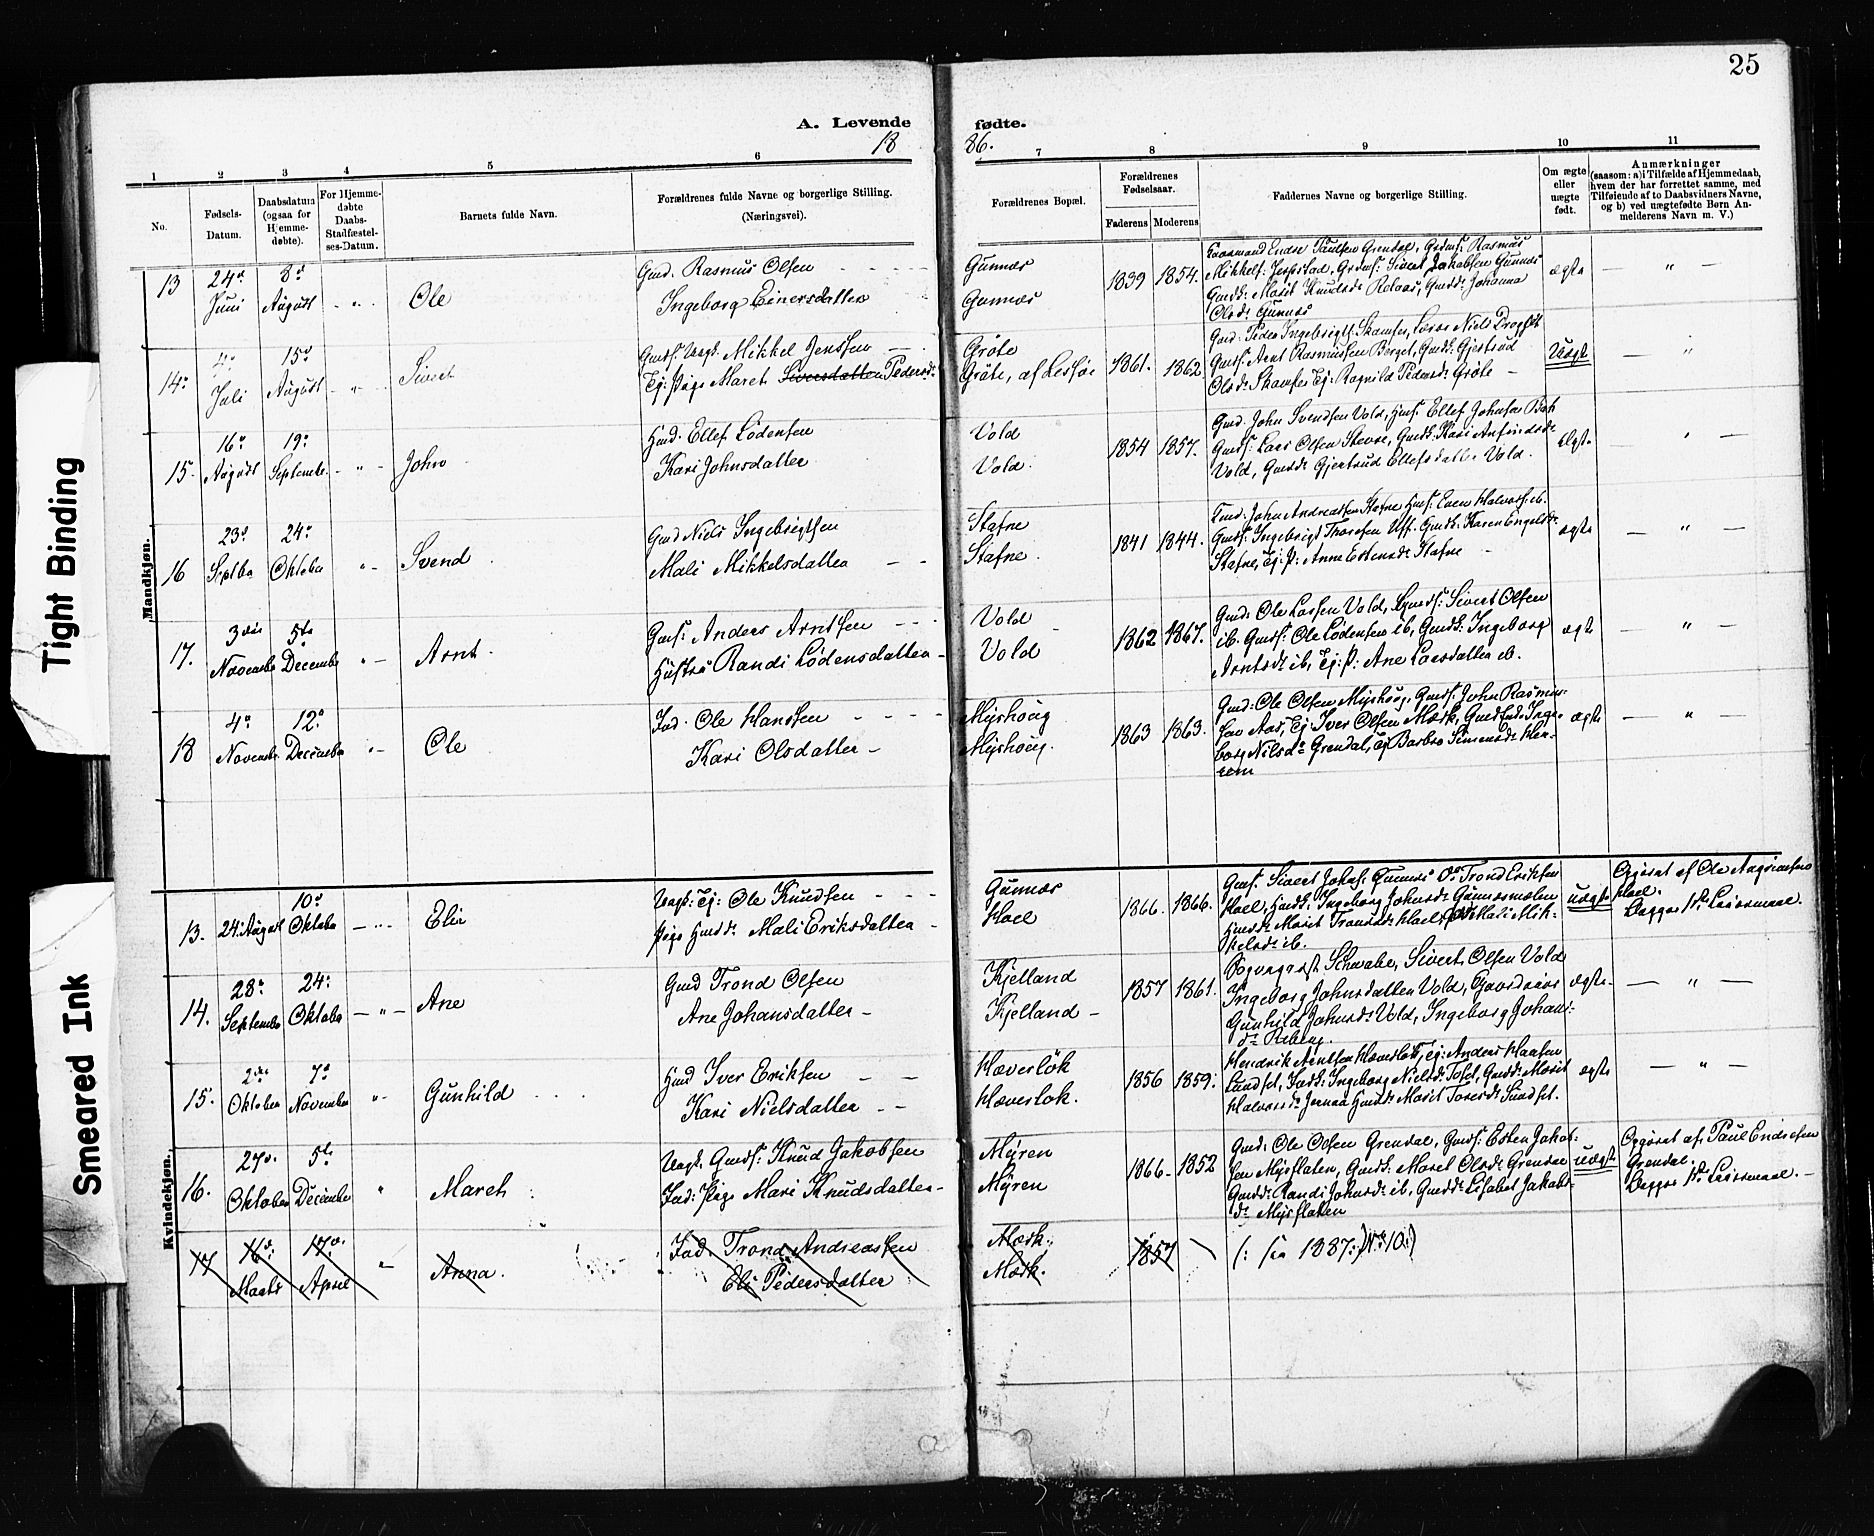 25
A. Levende fødte.
1886.
1 2 3 4 5 6 7 8 9 10 11
No.
Fødsels-
Datum.
Daabsdatum
(ogsaa for
Hjemme-
døbte).
For Hjemme-
døbte
Daabs-
Stadfæstel-
ses-Datum.
Barnets fulde Navn.
Forældrenes fulde Navne og borgerlige Stilling.
(Næringsvei).
Forældrenes Bopæl.
Forældrenes
Fødselsaar.
Faderens Moderens
Faddernes Navne og borgerlige Stilling.
Om ægte
eller
uægte
født.
Anmærkninger
(saasom: a) i Tilfælde af Hjemmedaab,
hvem der har forrettet samme, med
Tilføiende af to Daabsvidners Navne,
og b) ved uægtefødte Børn An-
melderens Navn m. V.)
Mandkjøn.
13 24de Juni 8de August Ole
Gmd. Rasmus Olsen
Ingeborg Einersdatter
Gunnes
Gunnes
1839 1854.
Endre Paulsen Grendal, Grdmsf. Rasmus
Mikkelsf. Jerpstad, Grdmsf. Sivert Jakobsen Gunnes
Gmdd. Marit Knudsd. Johanna
Olsd. Gunnes
ægte
14. 4de Juli 15de August Sivert
Mikkel Jenssen
Ej. Pige Maret Siversdatter Pedersd.
Grøte
Grøte, af Lesje
1861. 1862
Gmd. Peder Ingebrigts. Skamfer, Lærer Niels
Gmdsf. Arnt Rasmussen Berget, Gmdd. Gjertrud
Olsd. Skamfer Ej. Ragnild Pedersd. Grøte
Uægte
15. 16de August 19de September John
Hmd. Ellef Lødensen
Kari Johnsdatter
Vold
Vold.
1854 1857.
Gmd. John Svendsen Vold, Hmsf. Ellef Johnsen
Gmdsf. Lars Olsen Stevre, Gmdk. Kari Anfindsd.
Vold, Gmdd. Gjertrud Ellefsdatter Vold.
Ægte
16 23de Septbr 24de Oktober Svend
Gmd Niels Ingebrigtsen
Mali Mikkelsdatter
Stafne
Stafne.
1841 1844.
John Andreassen Stafne Hmsf. Even Halvorsf. ib.
Gmdsf. Ingebrigt Thoresen Uff. Gmdk. Karen Engelsd.
Stafne, Ej. P. Anne Estensd. Stafne
ægte
17. 3die November 5te December Arnt
Gmsf. Anders Arntsen
Hustru Randi Lødensdatter
Vold
Vold
1862 1867.
Gmd. Ole Larsen Vold, Gmdsf. Sivert Olsen
ib. Gmdsf. Ole Lødensen ib, Gmdk. Ingeborg
Arntsd. ib, Ej. P. Ane Larsdatter ib.
ægte
18 4de November 12te December Ole
Ind. Ole Hanssen
Kari Olsdatter
Myshoug
Myshoug.
1863 1863.
Gmd. Ole Olsen Myshoug, Gmdsf. John Rasmus-
sen Aas, Ej. Iver Olsen Mærk, Inge-
borg Nilsd. Grendal, Ej Barbro Simensd. Hær-
rem
ægte
Kvindekjøn.
13. 24. August 10de Oktober Eli
Ungk. Ej. Ole Knudsen
Pige Hmdd. Mali Eriksdatter
Gunnes
Hoel
1866. 1866.
Gmsf. Sivert Johnsf. Gunnes Trond Eriksen
Hoel, Hmdk. Ingeborg Johnsd. Gunnesmoen
Hmdd. Marit Trondsd. Hoel, Mali Mik-
kelsd. ib.
uægte
Opgivet af Ole
Hoel.
Begges 1ste Leiermaal.
14. 28de September 24de Oktober Ane
Gmd Trond Olsen
Ane Johansdatter
Kjelland
Kjelland
1857 1861.
Schwabe, Sivert Olsen Vold
Ingeborg Johnsdatter Vold,
Gunhild Johnsd. Vold, Ingeborg Johans-
d.
ægte.
15. 2den Oktober 7de November Gunhild
Hmd Iver Eriksen
Kari Nielsdatter
Hæverløk
Hæverlok.
1856 1859.
Hendrik Arntsen Hæverløk, Ej. Anders Haasen
Lundset, Indk. Ingeborg Nielsd. Toset, Gmdd. Marit
Halvorsd. Hmdd. Marit Toresd. Lundset.
ægte
16. 27de Oktober 5te December Maret
Ungk. Gmdsf. Knud Jakobsen
Ind. Pige Mari Knudsdatter
Myren
Myren
1866. 1852
Gmd. Ole Olsen Grendal, Gmdsf. Esten Jakob-
sen Mysflaten, Gmdk. Maret Olsd. Grendal
Gmdd. Randi Johnsd. ib, Gmdd. Lisabet Jakobs-
d. Mysflaten
uægte
Opgivet af Paul Endresen
Grendal.
Begges 1ste Leiermaal.
17 16de Marts 17de April Anna.
Ind. Trond Andreassen
Eli Pedersdatter
Mærk.
Mærk.
1857
(: fra 1887: (No 10:)
Tight Binding
Smeared Ink